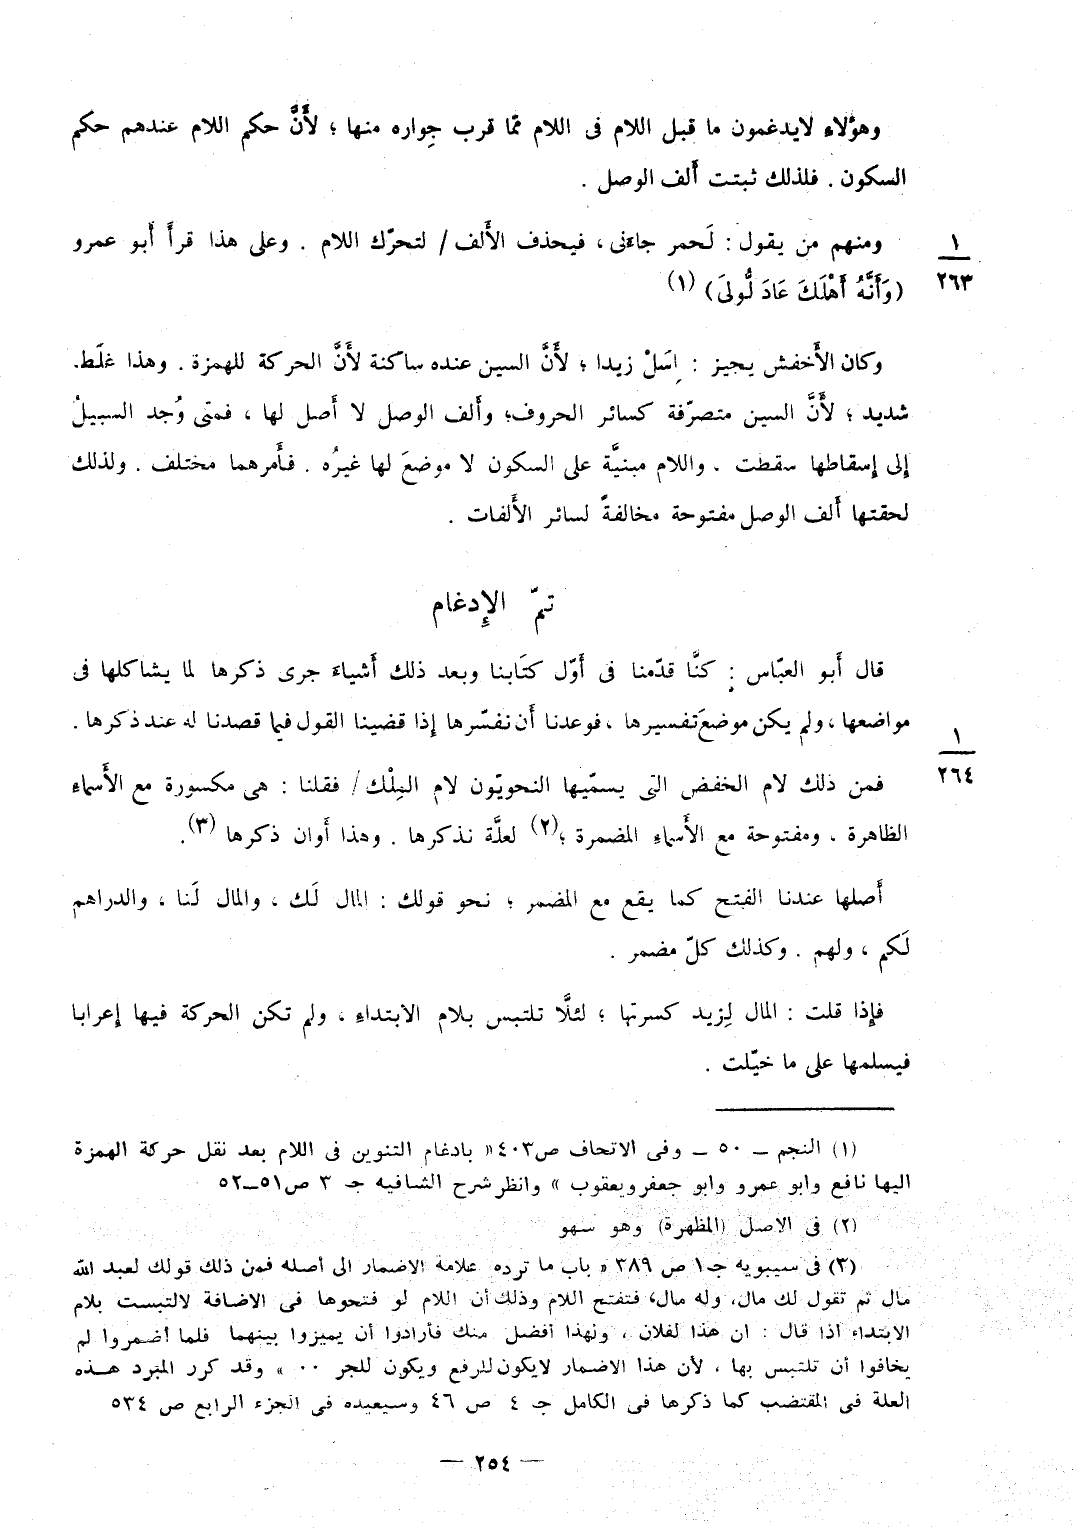 وهؤلاء لايدغمون ما قبل اللام فى اللام ممّا قرب جِواره منها ؛ لأَنَّ حكم اللام عندهم حكم
السكون . فلذلك ثبتت أَلف الوصل .
ومنهم من يقول : لَحمر جاءَنى ، فيحذف الأَلف / لتحرّك اللام . وعلى هذا قرأَ أَبو عمرو
١
٢٦٣
(وَأَنَّهُ أَهْلَكَ عَادَ لُّولىَ) (١)
وكان الأَخفش يجيز : اِسَلْ زيدا ؛ لأَنَّ السين عنده ساكنة لأَنَّ الحركة للهمزة . وهذا غلَط
شديد ؛ لأَنَّ السين متصرّفة كسائر الحروف؛ وأَلف الوصل لا أَصل لها ، فمتى وُجد السبيلُ
إِلى إِسقاطها سقطت . واللام مبنيَّة على السكون لا موضعَ لها غيرُه . فأَمرهما مختلف . ولذلك
لحقتها أَلف الوصل مفتوحة مخالفةً لسائر الأَلفات .
تمّ الإِدغام
قال أَبو العبّاس : كنَّا قدّمنا فى أَوّل كتَابنا وبعد ذلك أَشياءَ جرى ذكرها لما يشاكلها فى
مواضعها ، ولم يكن موضعَ تفسيرها ، فوعدنا أَن نفسّرها إِذا قضينا القول فيما قصدنا له عند ذكرها .
١
٢٦٤
فمن ذلك لام الخفض التى يسمّيها النحويّون لام المِلْك / فقلنا : هى مكسورة مع الأَسماء
الظاهرة . ومفتوحة مع الأَسماءِ المضمرة ؛(٢) لعلَّة نذكرها . وهذا أَوان ذكرها (٣).
أَصلها عندنا الفتح كما يقع مع المضمر ؛ نحو قولك : المال لَك ، والمال لَنا ، والدراهم
لَكم ، ولهم . وكذلك كلّ مضمر .
فإِذا قلت : المال لِزيد كسرتها ؛ لئلَّا تلتبس بلام الابتداءِ ، ولم تكن الحركة فيها إِعرابا
فيسلمها على ما خيّلت .
(١) النجم – ٥٠ – وفى الاتحاف ص٤٠٣ « بادغام التنوين فى اللام بعد نقل حركة الهمزة
اليها نافع وابو عمرو وابو جعفر ويعقوب » وانظر شرح الشافيه جـ ٣ ص٥١–٥٢
(٢) فى الاصل (المظهرة) وهو سهو
(٣) فى سيبويه جـ١ ص ٣٨٩ « باب ما ترده علامة الاضمار الى أصله فمن ذلك قولك لعبد الله
مال ثم تقول لك مال، وله مال، فتفتح اللام وذلك أن اللام لو فتحوها فى الاضافة لالتبست بلام
الابتداء اذا قال : ان هذا لفلان ، ولهذا أفضل منك فأرادوا أن يميزوا بينهما فلما أضمروا لم
يخافوا أن تلتبس بها ، لأن هذا الاضمار لايكون للرفع ويكون للجر ٠٠ » وقد كرر المبرد هـــذه
العلة فى المقتضب كما ذكرها فى الكامل جـ ٤ ص ٤٦ وسيعيده فى الجزء الرابع ص ٥٣٤
— ٢٥٤ —